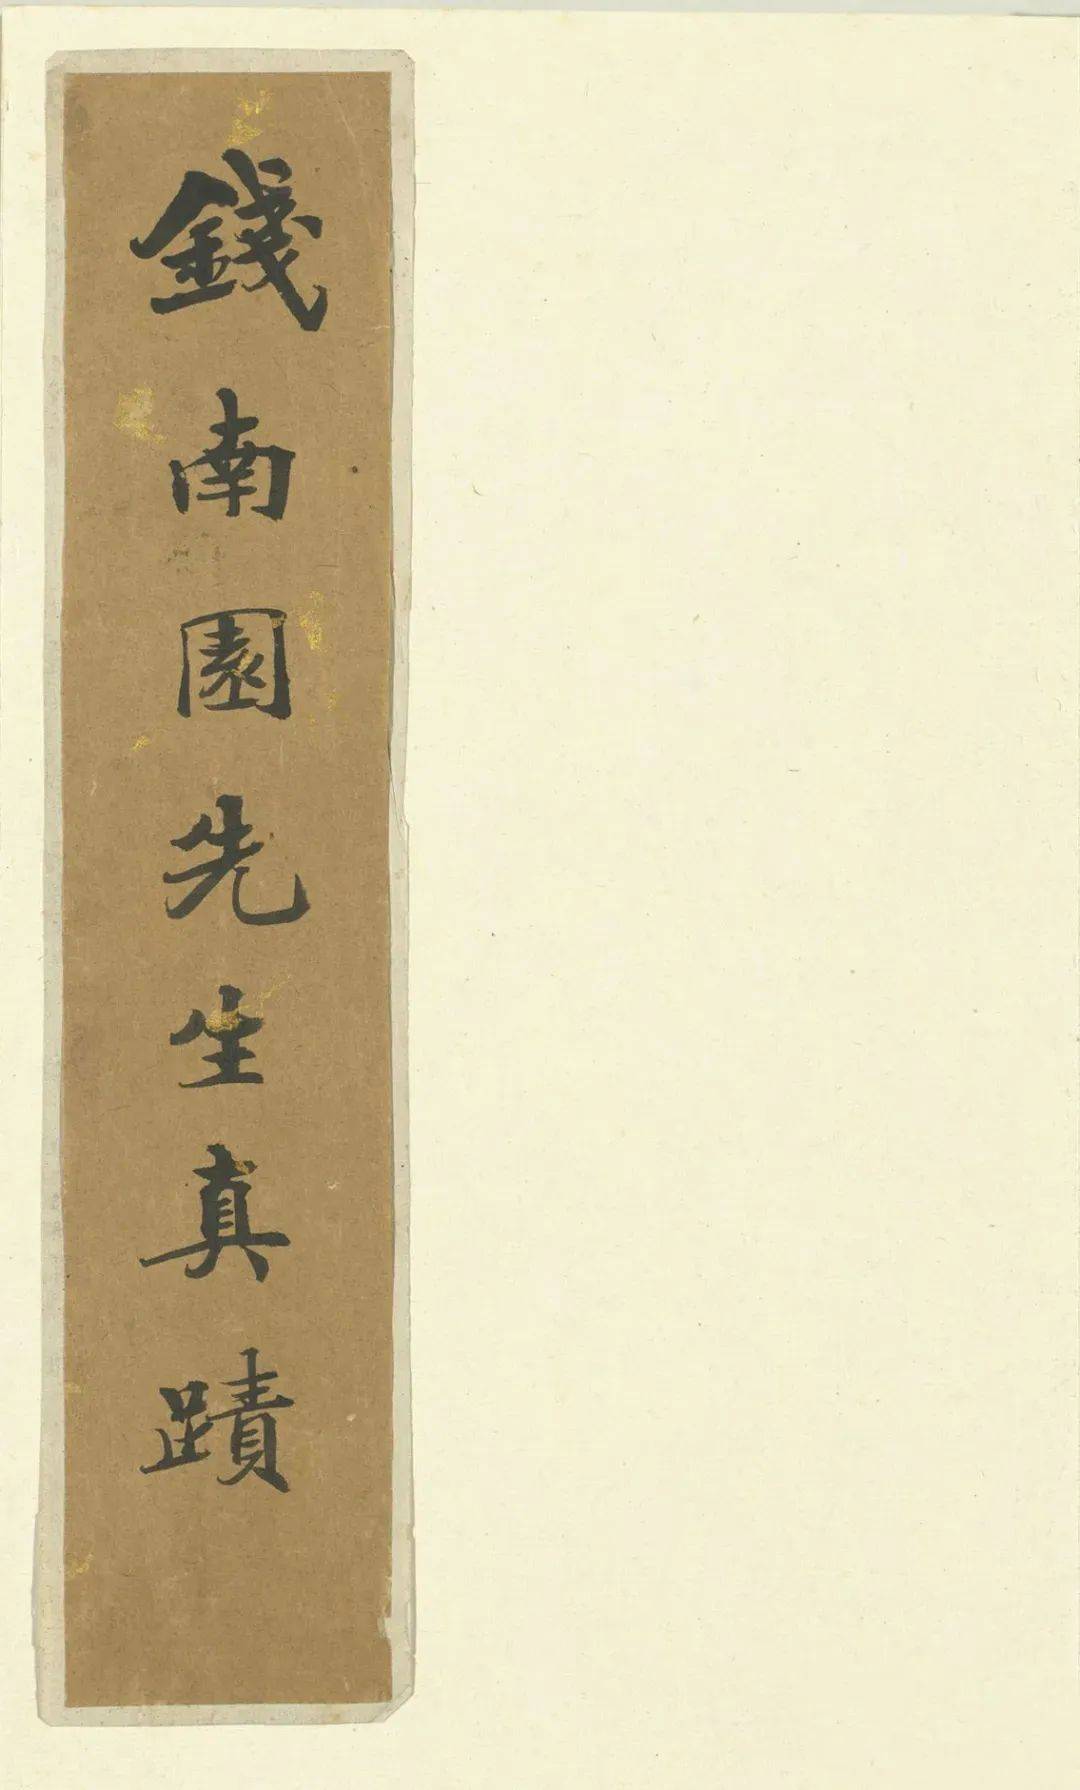 錢南園先生真蹟